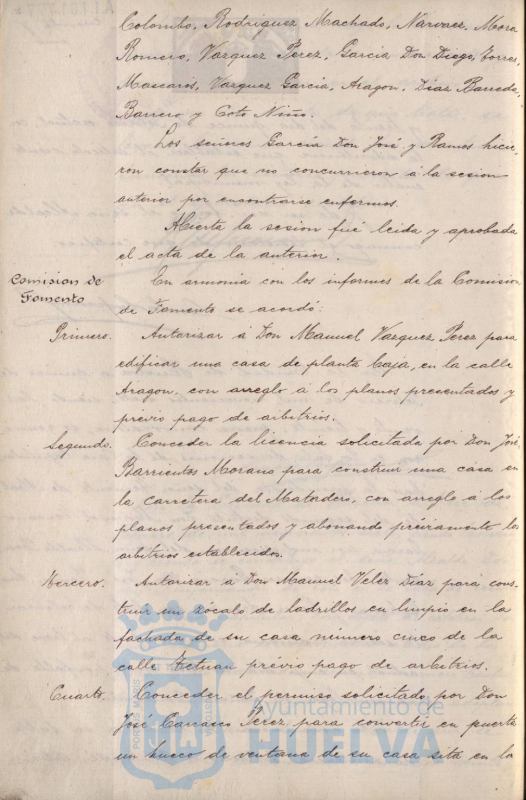 Colombo, Rodriguez Machado, Narvaez, Mora
Romero, Vazquez Perez, Garcia Don Diego, Torres,
Mascarós, Vazquez Garcia, Aragon, Diaz Barreda,
Barrero y Coto Niño.
Los señores Garcia Don José y Ramos hicie-
ron constar que no concurrieron á la sesion
anterior por encontrarse enfermos.
Abierta la sesion fué leida y aprobada
el acta de la anterior.
Comision de
Fomento
En armonia con los informes de la Comision
de Fomento se acordó:
Primero. Autorizar á Don Manuel Vazquez Perez para
edificar una casa de planta baja, en la calle
Aragon, con arreglo á los planos presentados y
prévio pago de arbitrios.
Segundo. Conceder la licencia solicitada por Don José
Barrientos Morano para construir una casa en
la carretera del Matadero, con arreglo á los
planos presentados y abonando préviamente los
arbitrios establecidos.
Tercero. Autorizar á Don Manuel Velez Diaz para cons-
truir un zócalo de ladrillos en limpio en la
fachada de su casa número cinco de la
calle Tetuan prévio pago de arbitrios.
Cuarto. Conceder el permiso solicitado por Don
José Carrasco Perez para convertir en puerta
un hueco de ventana de su casa sita en la
Ayuntamiento de
HUELVA